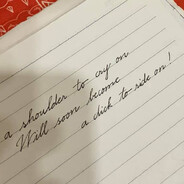 a shoulder to cry on
Will soon become
a dick to ride on!